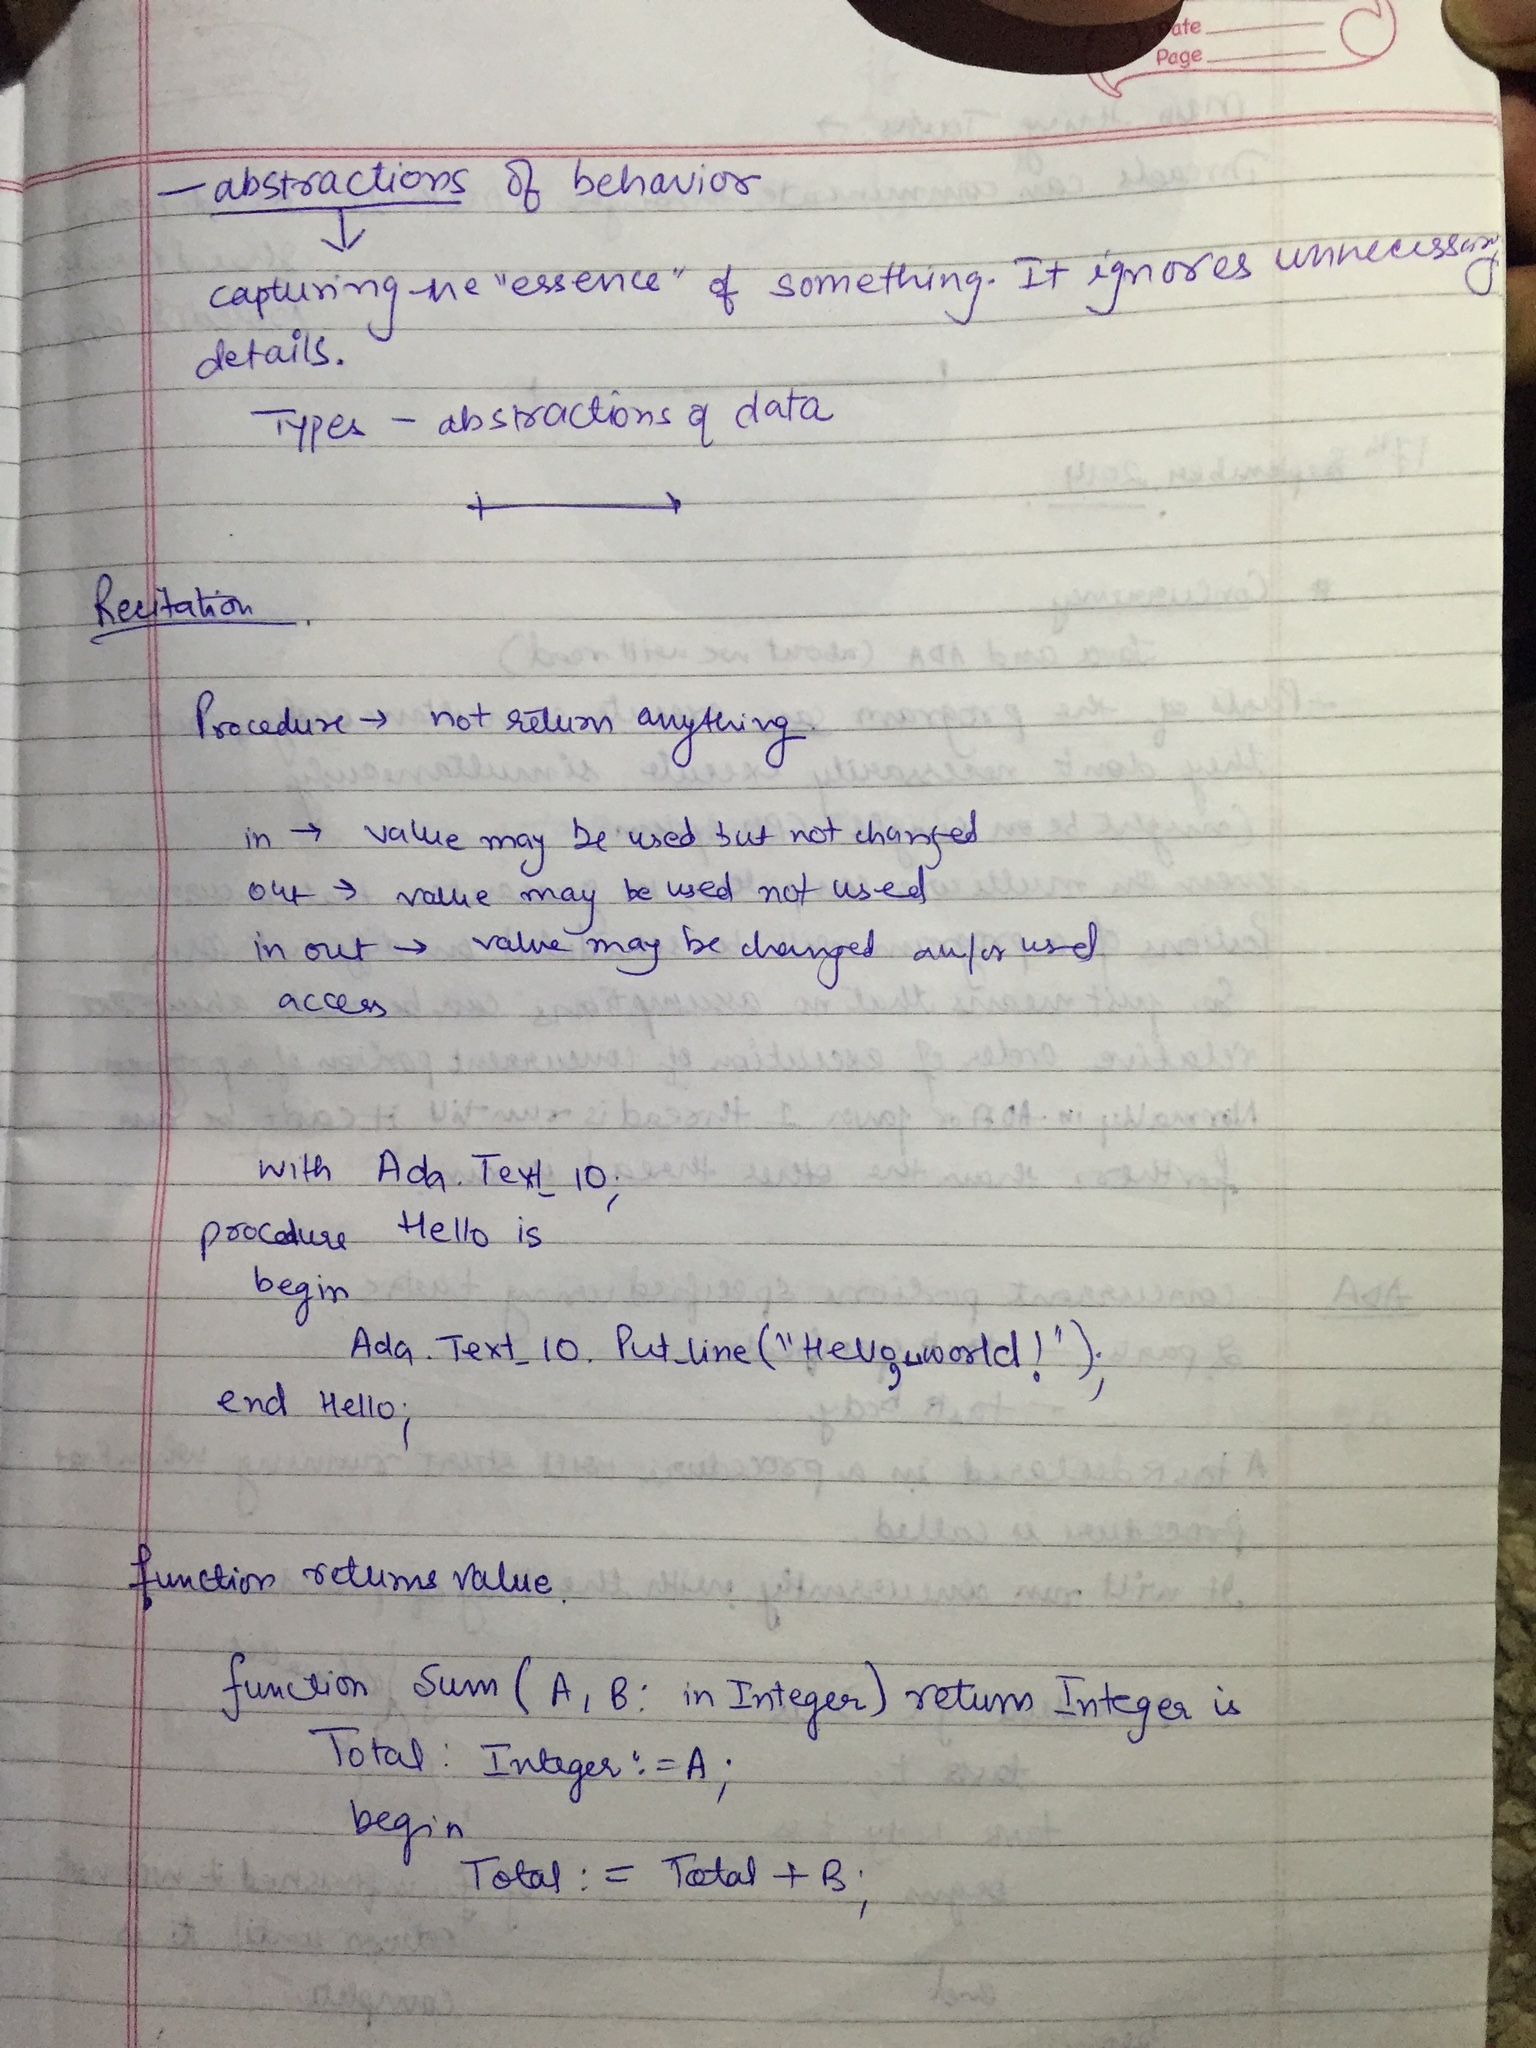 Date
Page
— abstractions of behavior
↓
capturing the "essence" of something. It ignores unnecessary
details.
Types - abstractions of data
Recitation.
Procedure → not return anything.
in → value may be used but not changed
out → value may be used not used
in out → value may be changed an/or used
access
with Ada.Text_IO;
procedure Hello is
begin
Ada.Text_IO.Put_line("Hello, world!");
end Hello;
function returns value.
function Sum(A, B: in Integer) return Integer is
Total: Integer := A;
begin
Total := Total + B;